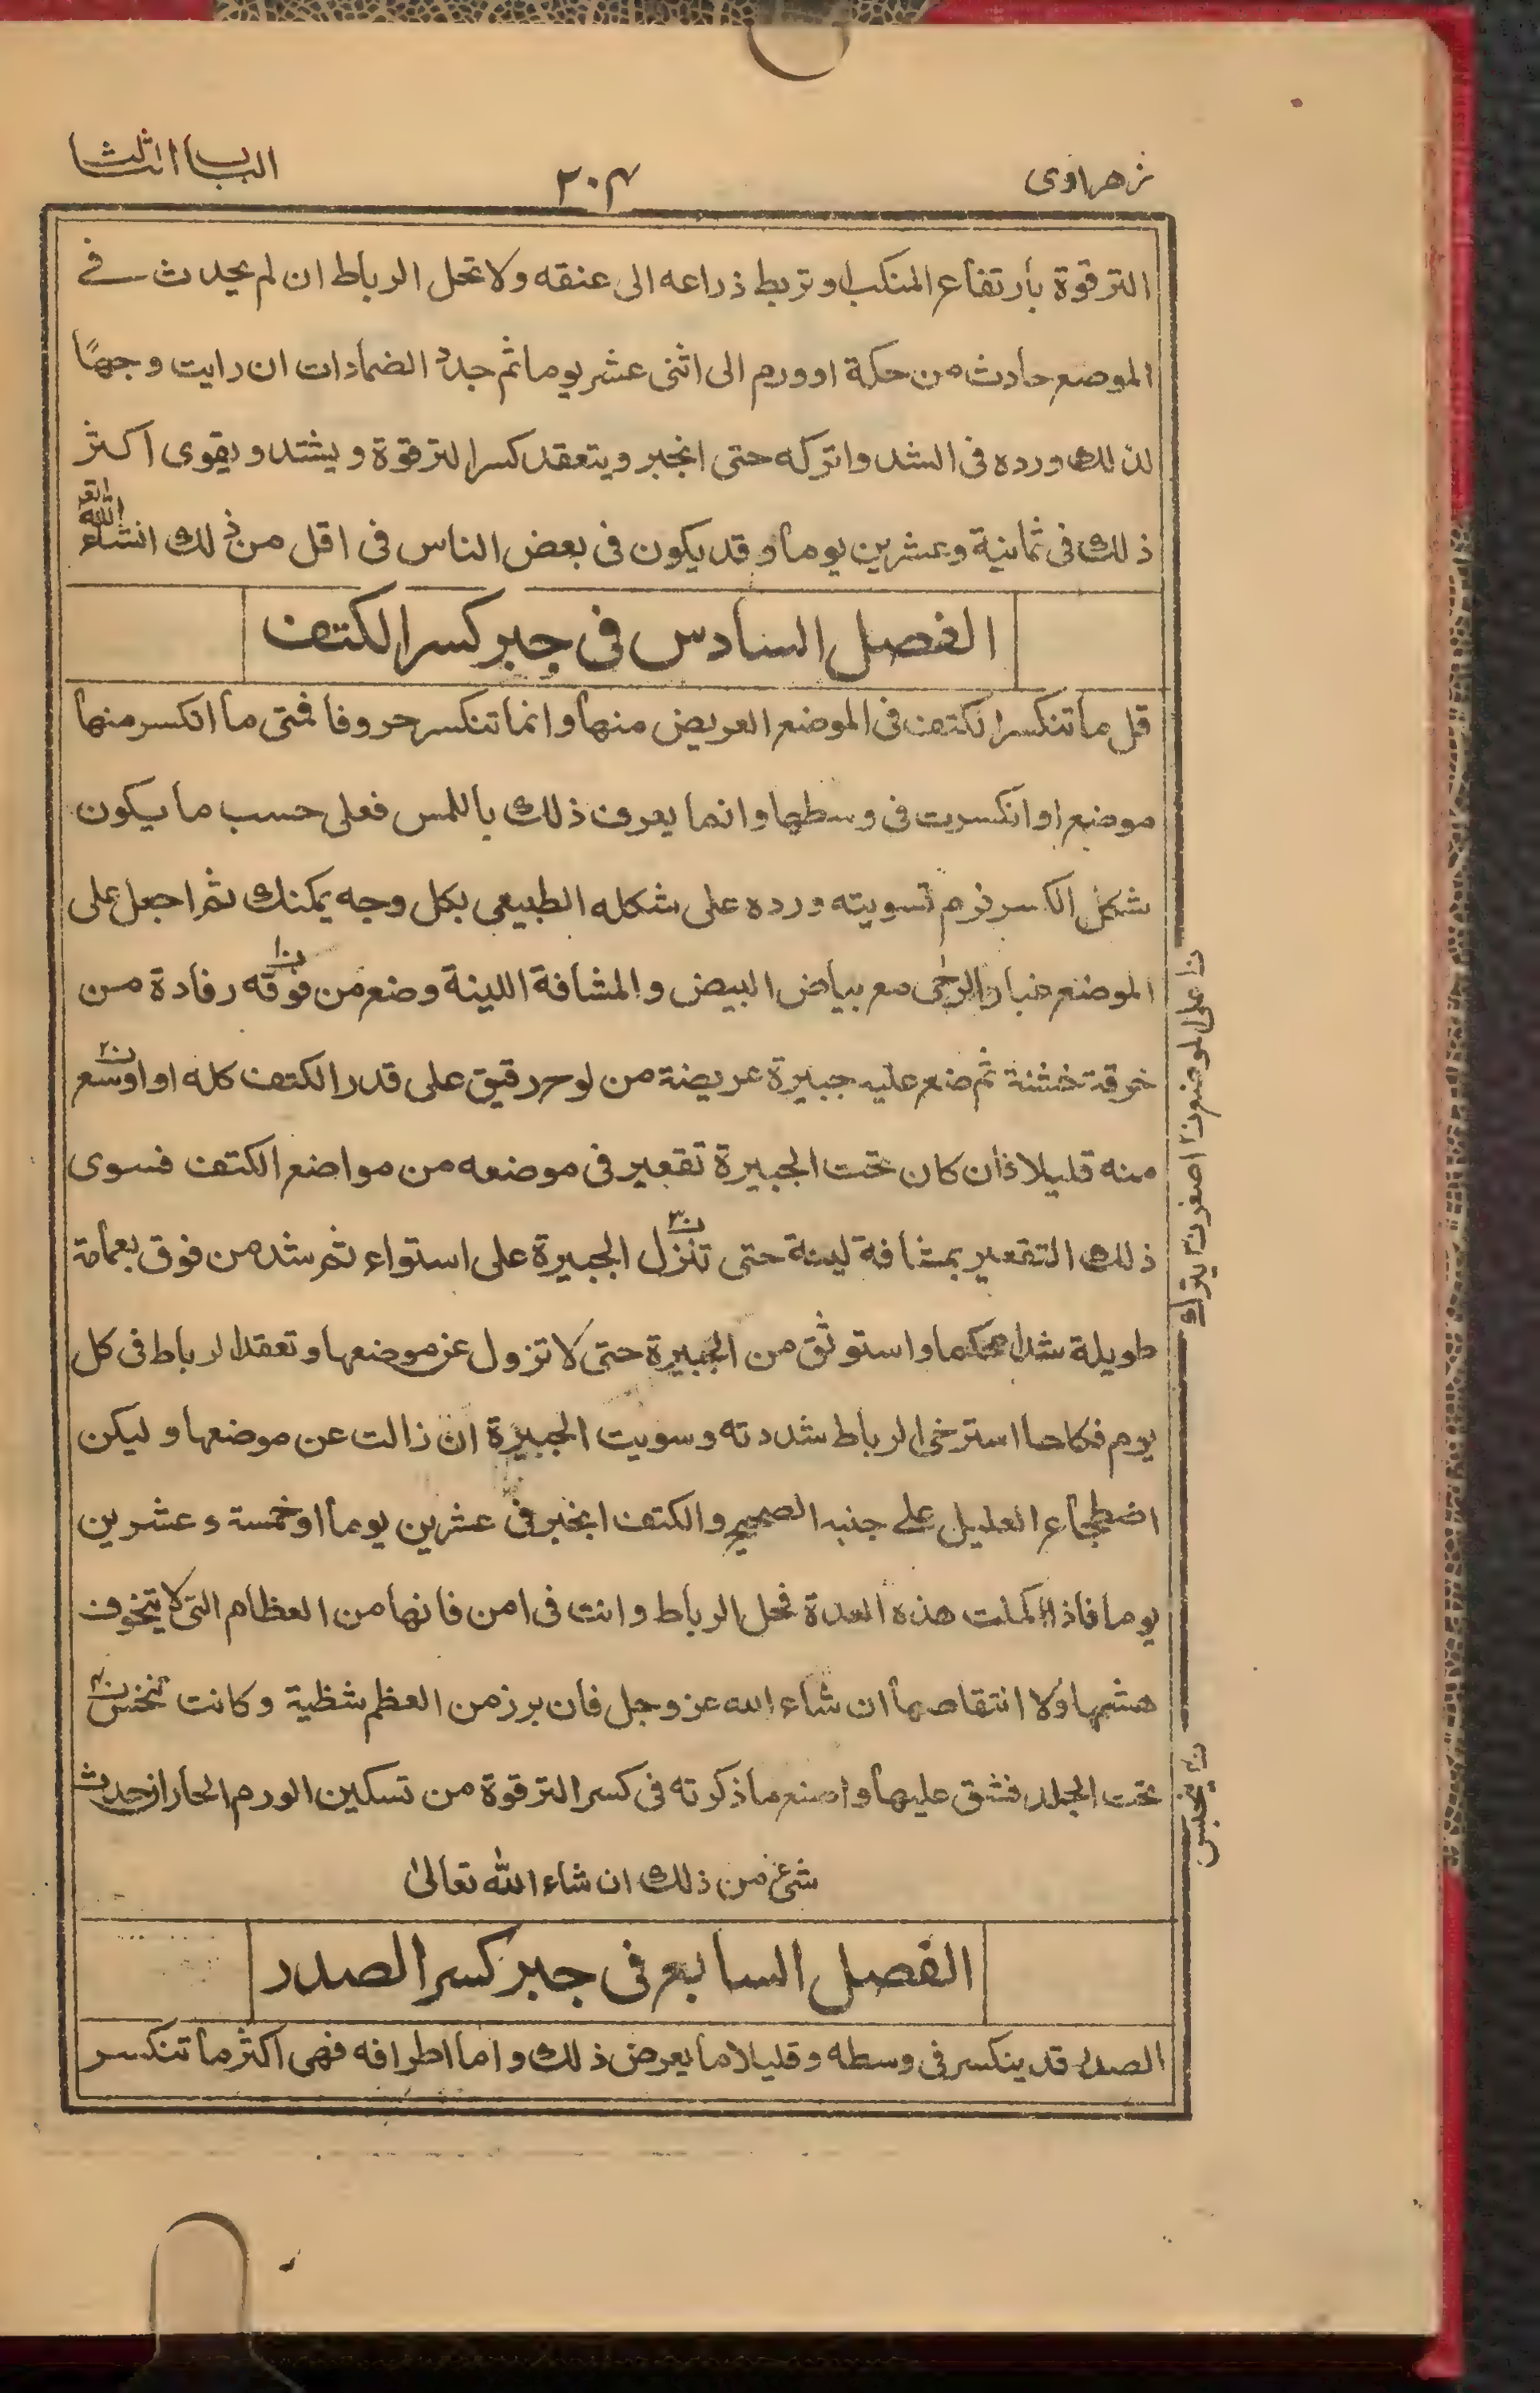 زهراوى
٢٠٤
الباب الثالث
الترقوة بارتفاع المنكب وتربط ذراعه الى عنقه ولا تحل الرباط ان لم يحدث فے
الموضع حادث من حكة او ورم الى اثنى عشر يوما ثم جدد الضمادات ان رايت وجهًا
لذلك ورده فى الشد واتركه حتى انجبر ويتعقد كسر الترقوة ويشتد ويقوى اكثر
ذلك فى ثمانية وعشرين يوما وقد يكون فى بعض الناس فى اقل من ذلك انشاء الله تع
الفصل السادس فى جبر كسر الكتف
قل ما تنكسر الكتف فى الموضع العريض منها وانما تنكسر حروفا فمتى ما انكسر منها
موضع او انكسرت فى وسطها وانما يعرف ذلك باللمس فعلى حسب ما يكون
شكل الكسر فرم تسويته ورده على شكله الطبيعى بكل وجه يمكنك ثم اجعل على
الموضع غبار الرحى مع بياض البيض والمشاقة اللينة وضع من فوقه ن١ رفادة من
خرقة خشنة ثم ضع عليه جبيرة عريضة من لوح رقيق على قدر الكتف كله او اوسع ن٢
منه قليلا فان كان تحت الجبيرة تقعير فى موضعه من مواضع الكتف فسوى
ذلك التقعير بمشاقة لينة حتى تنزل ن٣ الجبيرة على استواء ثم شد من فوق بعمامة
طويلة شدا محكما واستوثق من الجبيرة حتى لا تزول عن موضعها وتعقد الرباط فى كل
يوم فكلما استرخى الرباط شددته وسويت الجبيرة ان زالت عن موضعها وليكن
اضطجاع العليل علے جنبه الصحيح والكتف انجبر فى عشرين يوما او خمسة وعشرين
يوما فاذا اكملت هذه العدة فحل الرباط وانت فى امن فانها من العظام التى لا يتخوف
هشمها ولا انتقاصها ان شاء الله عز وجل فان برز من العظم شظية وكانت تنخس ن٤
تحت الجلد فشق عليها واصنع ما ذكرته فى كسر الترقوة من تسكين الورم الحار ان حدث
شئ من ذلك ان شاء الله تعالىٰ
الفصل السابع فى جبر كسر الصدر
الصدر قد ينكسر فى وسطه وقليلا ما يعرض ذلك واما اطرافه فهى اكثر ما تنكسر
ن١ على الموضع ن٢ اصغر ن٣ يترك
ن٤ يحبس